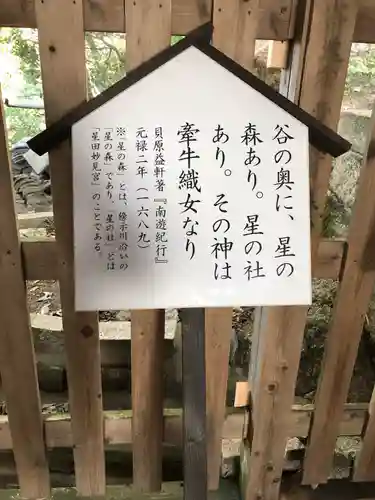 谷の奥に、星の
森あり。星の社
あり。その神は
牽牛織女なり
貝原益軒著『南遊紀行』
元禄二年（一六八九）
※「星の森」とは、傍示川沿いの
「星の森」であり、「星の社」とは
「星田妙見宮」のことである。